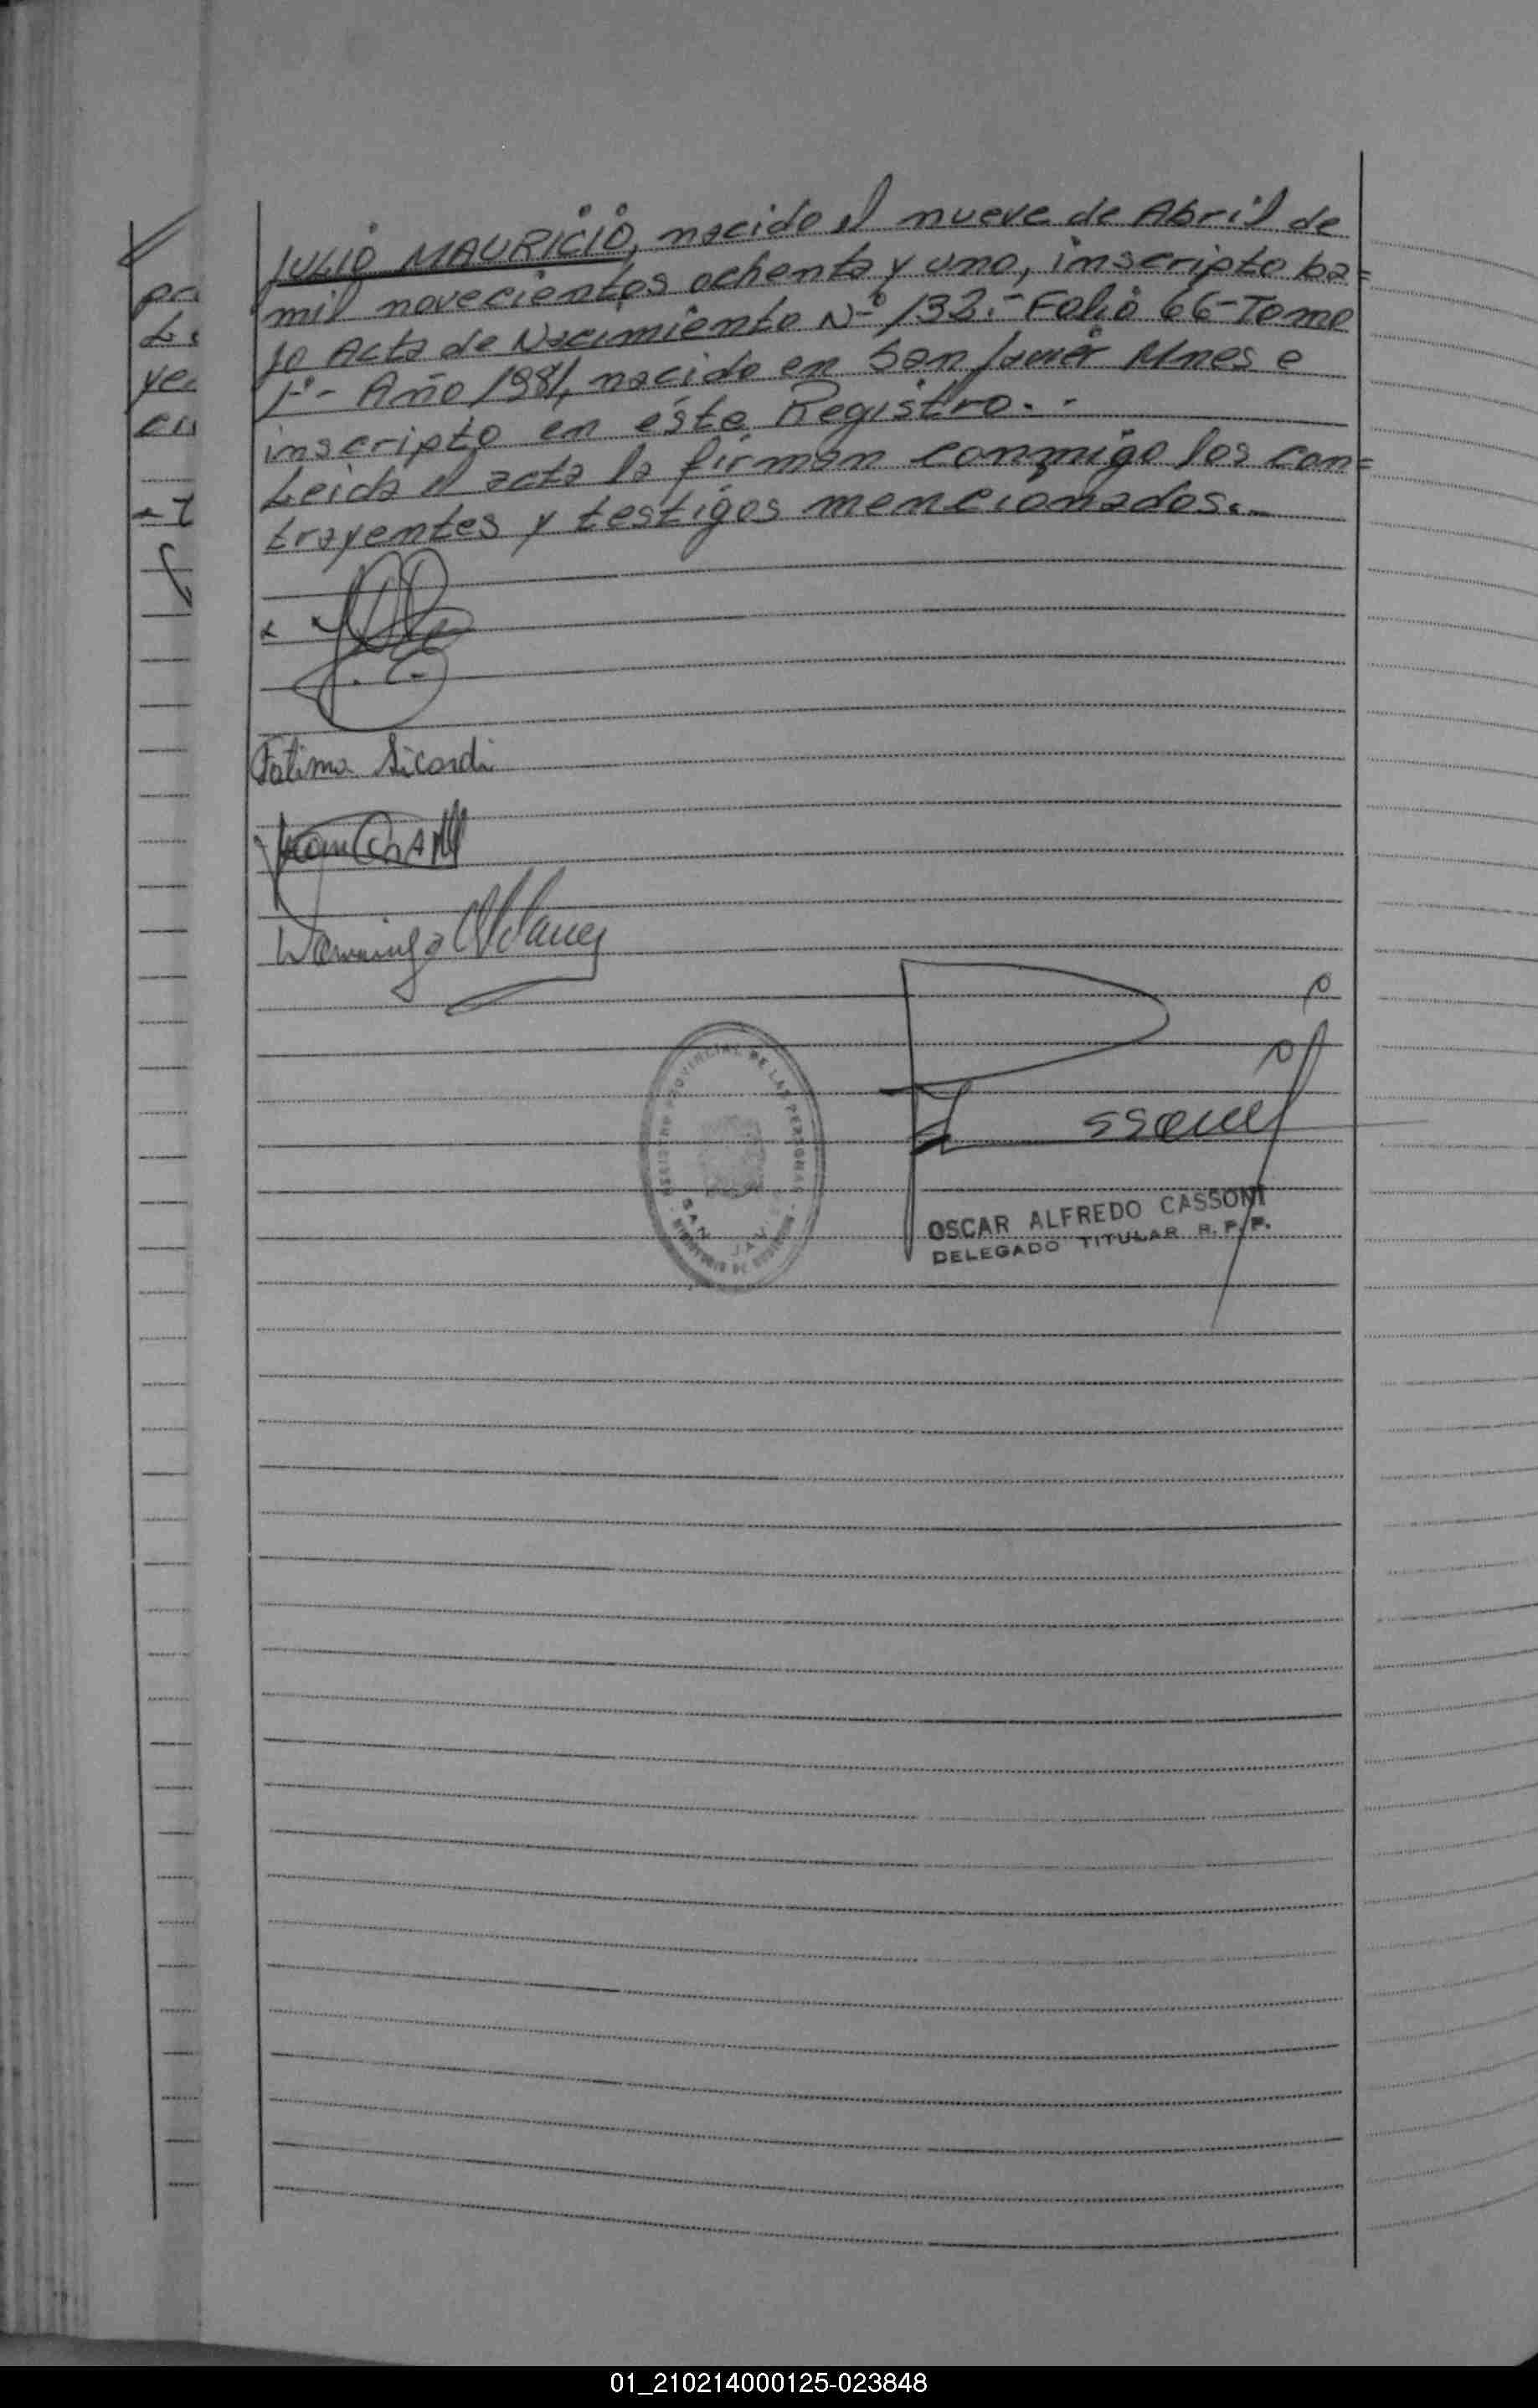 JULIO MAURICIO, nacido el nueve de Abril de
mil novecientos ochenta y uno, inscripto ba=
jo Acta de Nacimiento Nº 132.- Folio 66-Tomo
1º- Año 1981, nacido en San Javier Mnes e
inscripto en éste Registro.-
Leida el acta la firman conmigo los con=
trayentes y testigos mencionados.-
Fatima Sicardi
Domingo
REGISTRO PROVINCIAL DE LAS PERSONAS
SAN JAVIER
MINISTERIO DE GOBIERNO
OSCAR ALFREDO CASSONI
DELEGADO TITULAR R.P.P.
01_210214000125-023848